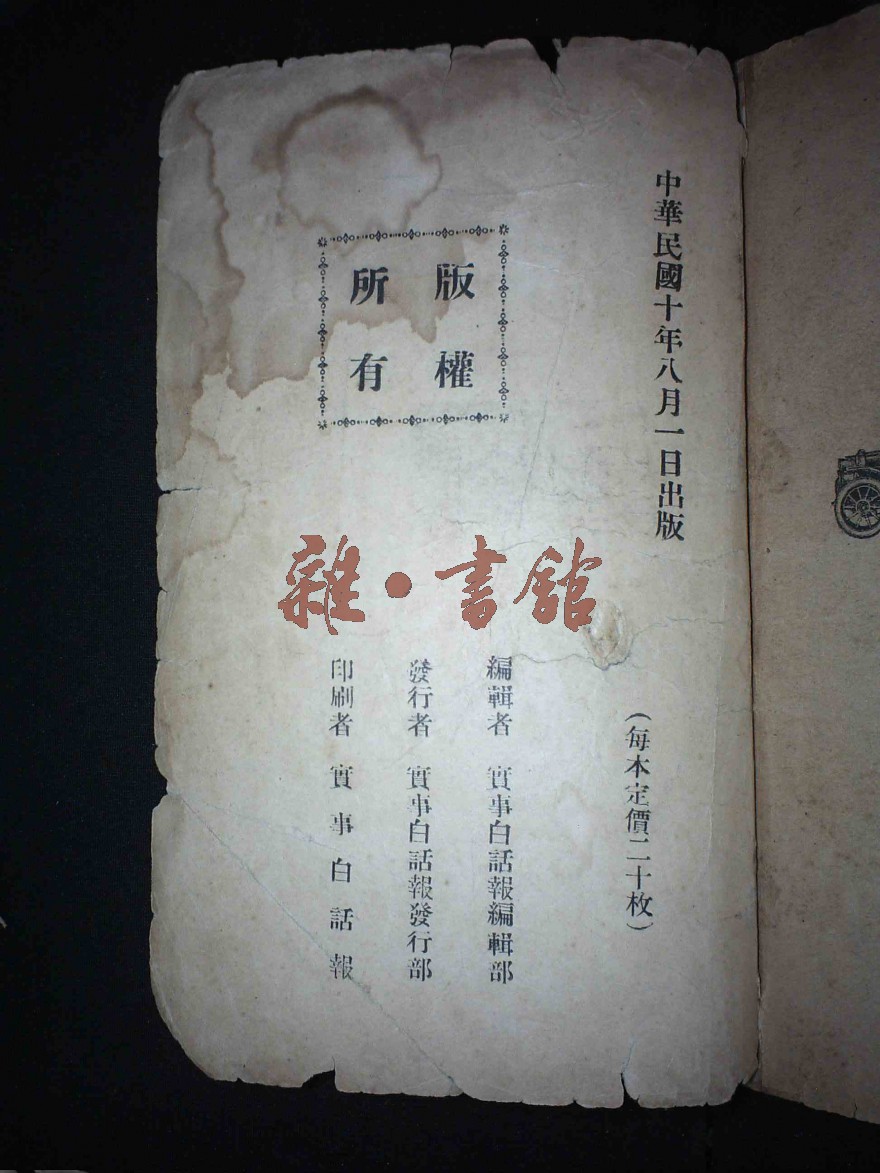 中華民國十年八月一日出版
（每本定價二十枚）
版權
所有
編輯者 實事白話報編輯部
發行者 實事白話報發行部
印刷者 實事白話報
雜·書館